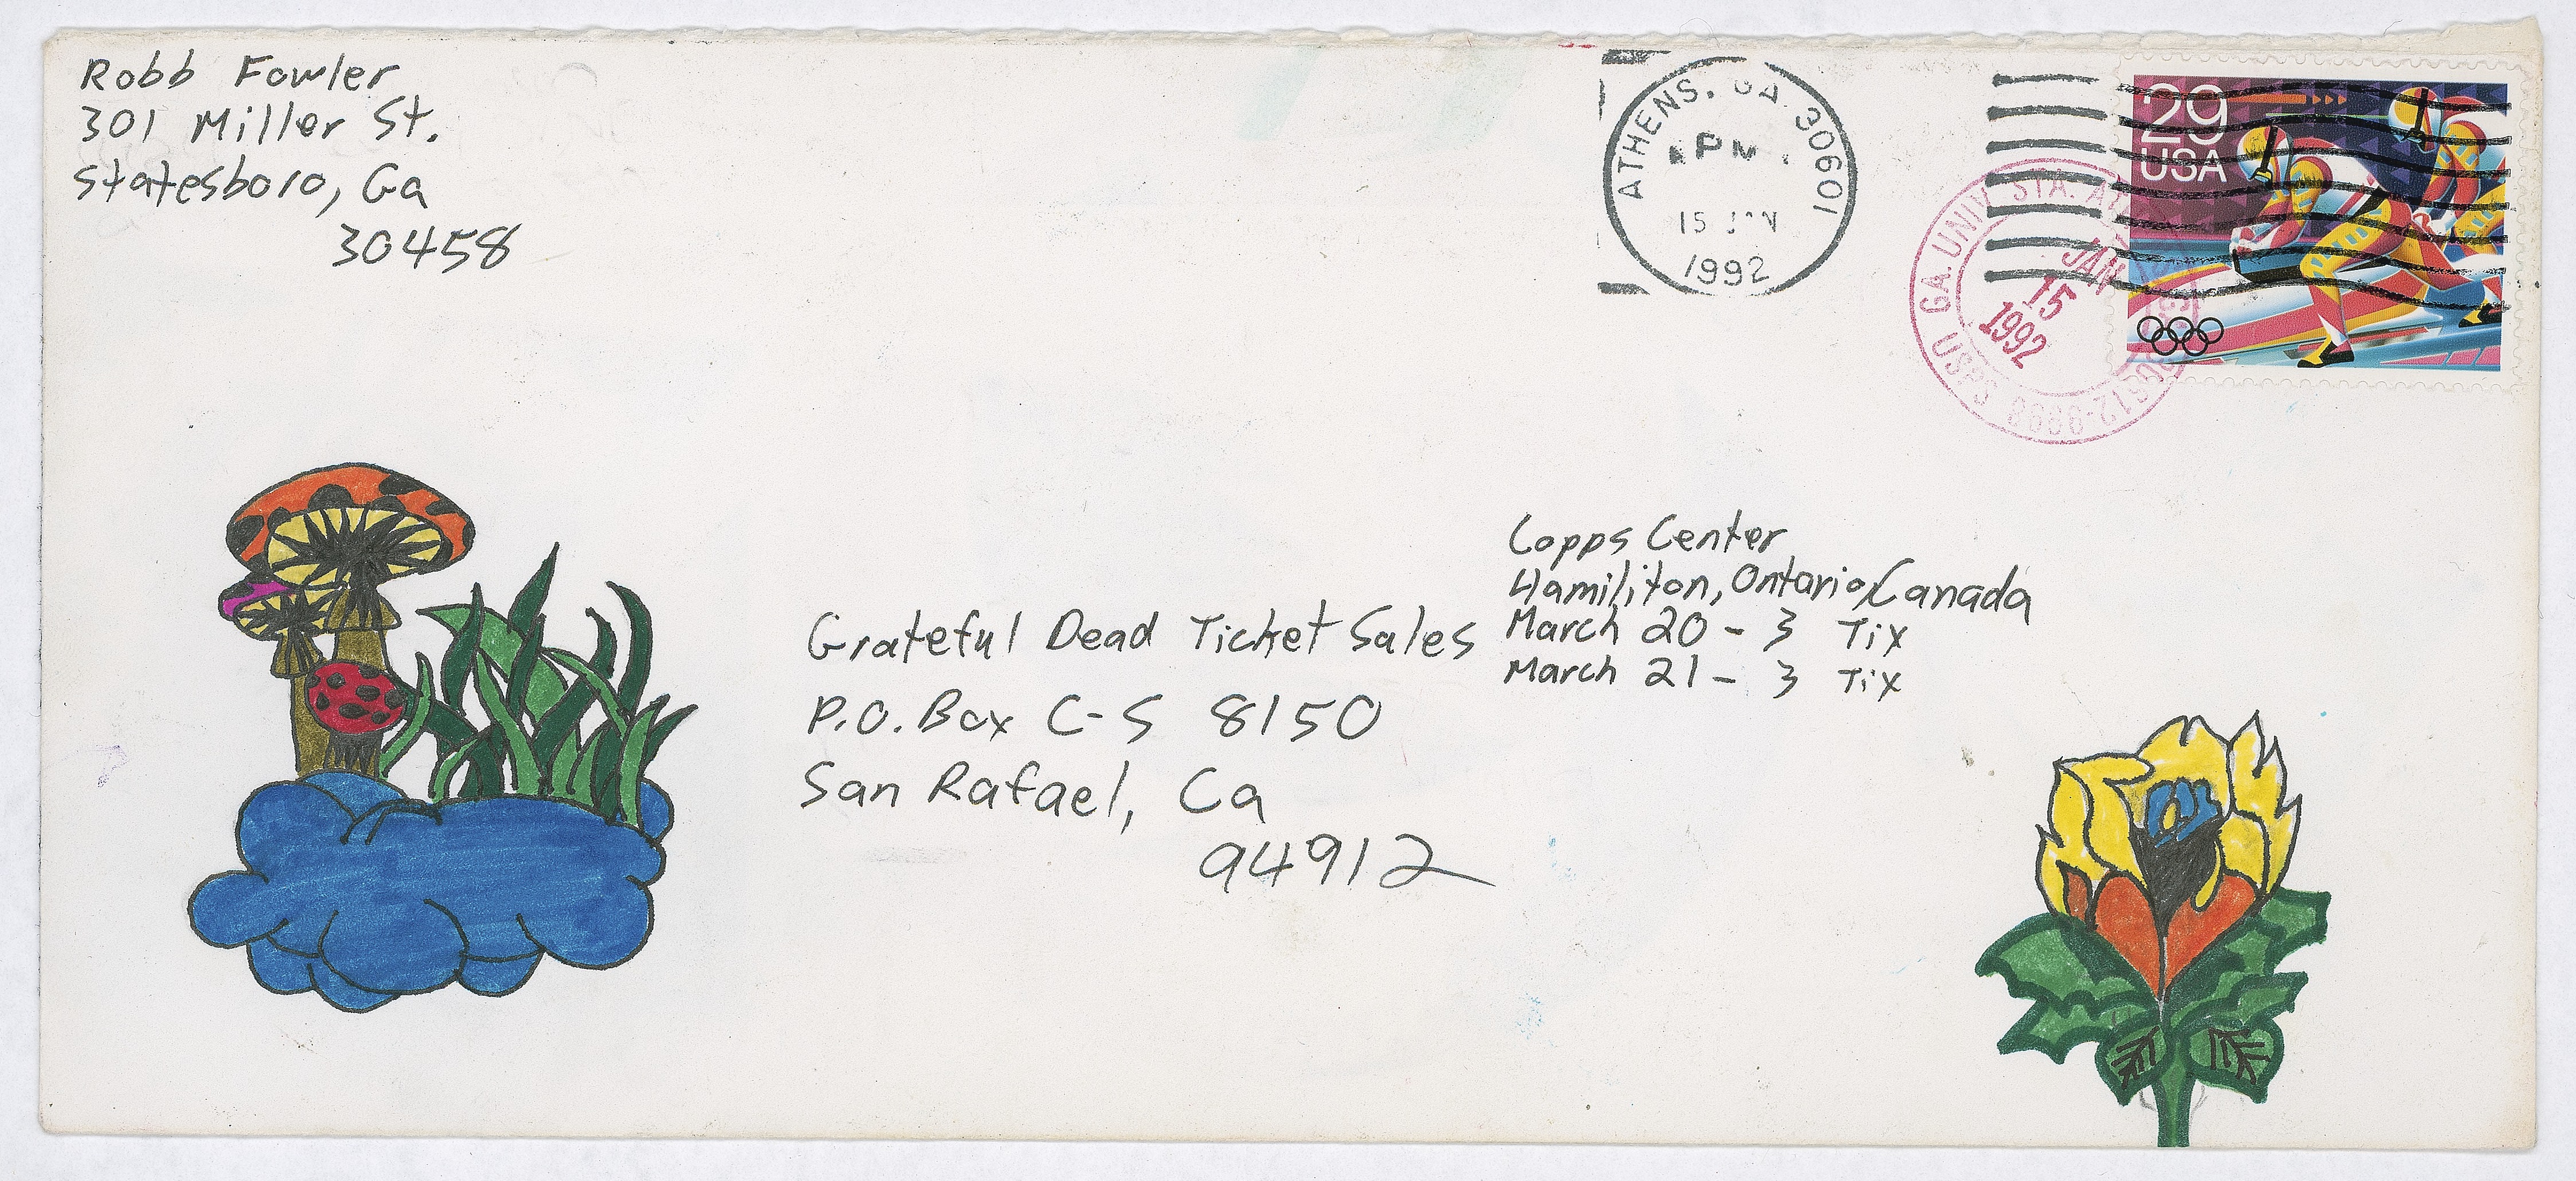 Robb Fowler
301 Miller St.
Statesboro, Ga
30458
ATHENS, GA 30601
PM
15 JAN
1992
GA. UNIV. STA.
JAN
15
1992
USPS 30612-9998
29
USA
Copps Center
Hamiliton, Ontario, Canada
March 20 - 3 Tix
March 21 - 3 Tix
Grateful Dead Ticket Sales
P.O. Box C-S 8150
San Rafael, Ca
94912